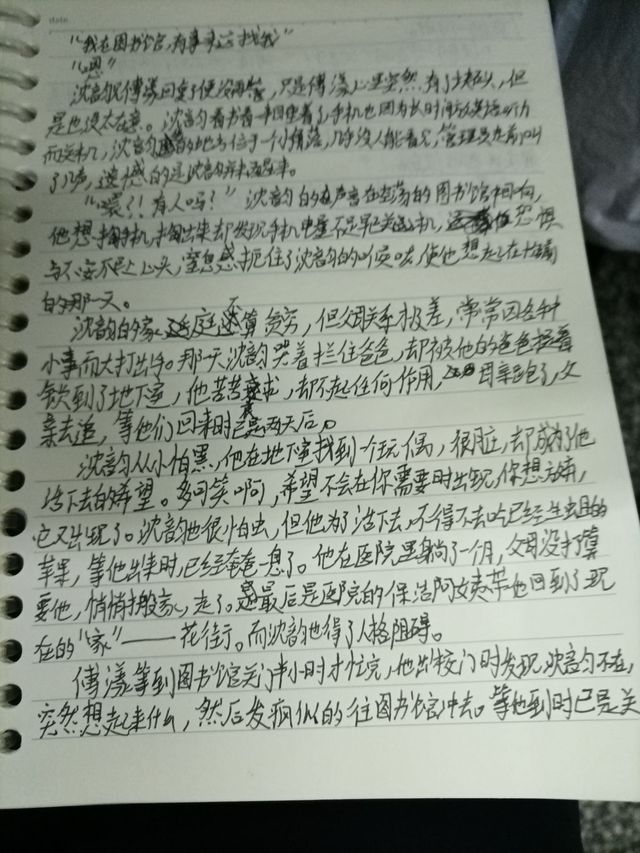 date
“我在图书馆,有事来这找我”
“嗯”
沈韵说傅漾回变了便没再答,只是傅漾心里突然有了块石头,但
是也没太在意。沈韵看书看 着了,手机也因为长时间放英语听力
而关机,沈韵 的地方位于一个小角落,几乎没人能看见,管理员走前叫
了几声,遗憾的是沈韵并未醒来。
“喂?!有人吗?”沈韵的声音在空荡的图书馆回响,
他想掏手机,掏出来却发现手机电量不足早已关机,恐惧
与不安不足上头,窒息感扼住了沈韵的喉咙,使他想起了在
的那一天。
沈韵的家庭不算贫穷,但父母关系极差,常常因各种
小事而大打出手。那一天沈韵哭着拦住爸爸,却被他的爸爸拖着
关到了地下室,他苦苦哀求,却不起任何作用,母亲跑了,父
亲去追,等他们回来时已是两天后。
沈韵从小怕黑,他在地下室找到一个玩偶,很脏,却成为了他
活下去的希望。多可笑啊,希望不会在你需要时出现,你想放弃,
它又出现了。沈韵也很怕虫,但他为了活下去,不得不去吃已经生蛆的
苹果,等他出来时,已经奄奄一息了。他在医院里躺了一个月,父母没打算
要他,悄悄搬家,走了。最后是医院的保洁阿姨带他回到了现
在的“家”——花街。而沈韵也得了人格阻碍。
傅漾等到图书馆关门半小时才忙完,他出校门时发现沈韵不在,
突然想起来什么,然后发疯似的往图书馆冲去。等他到时已是关